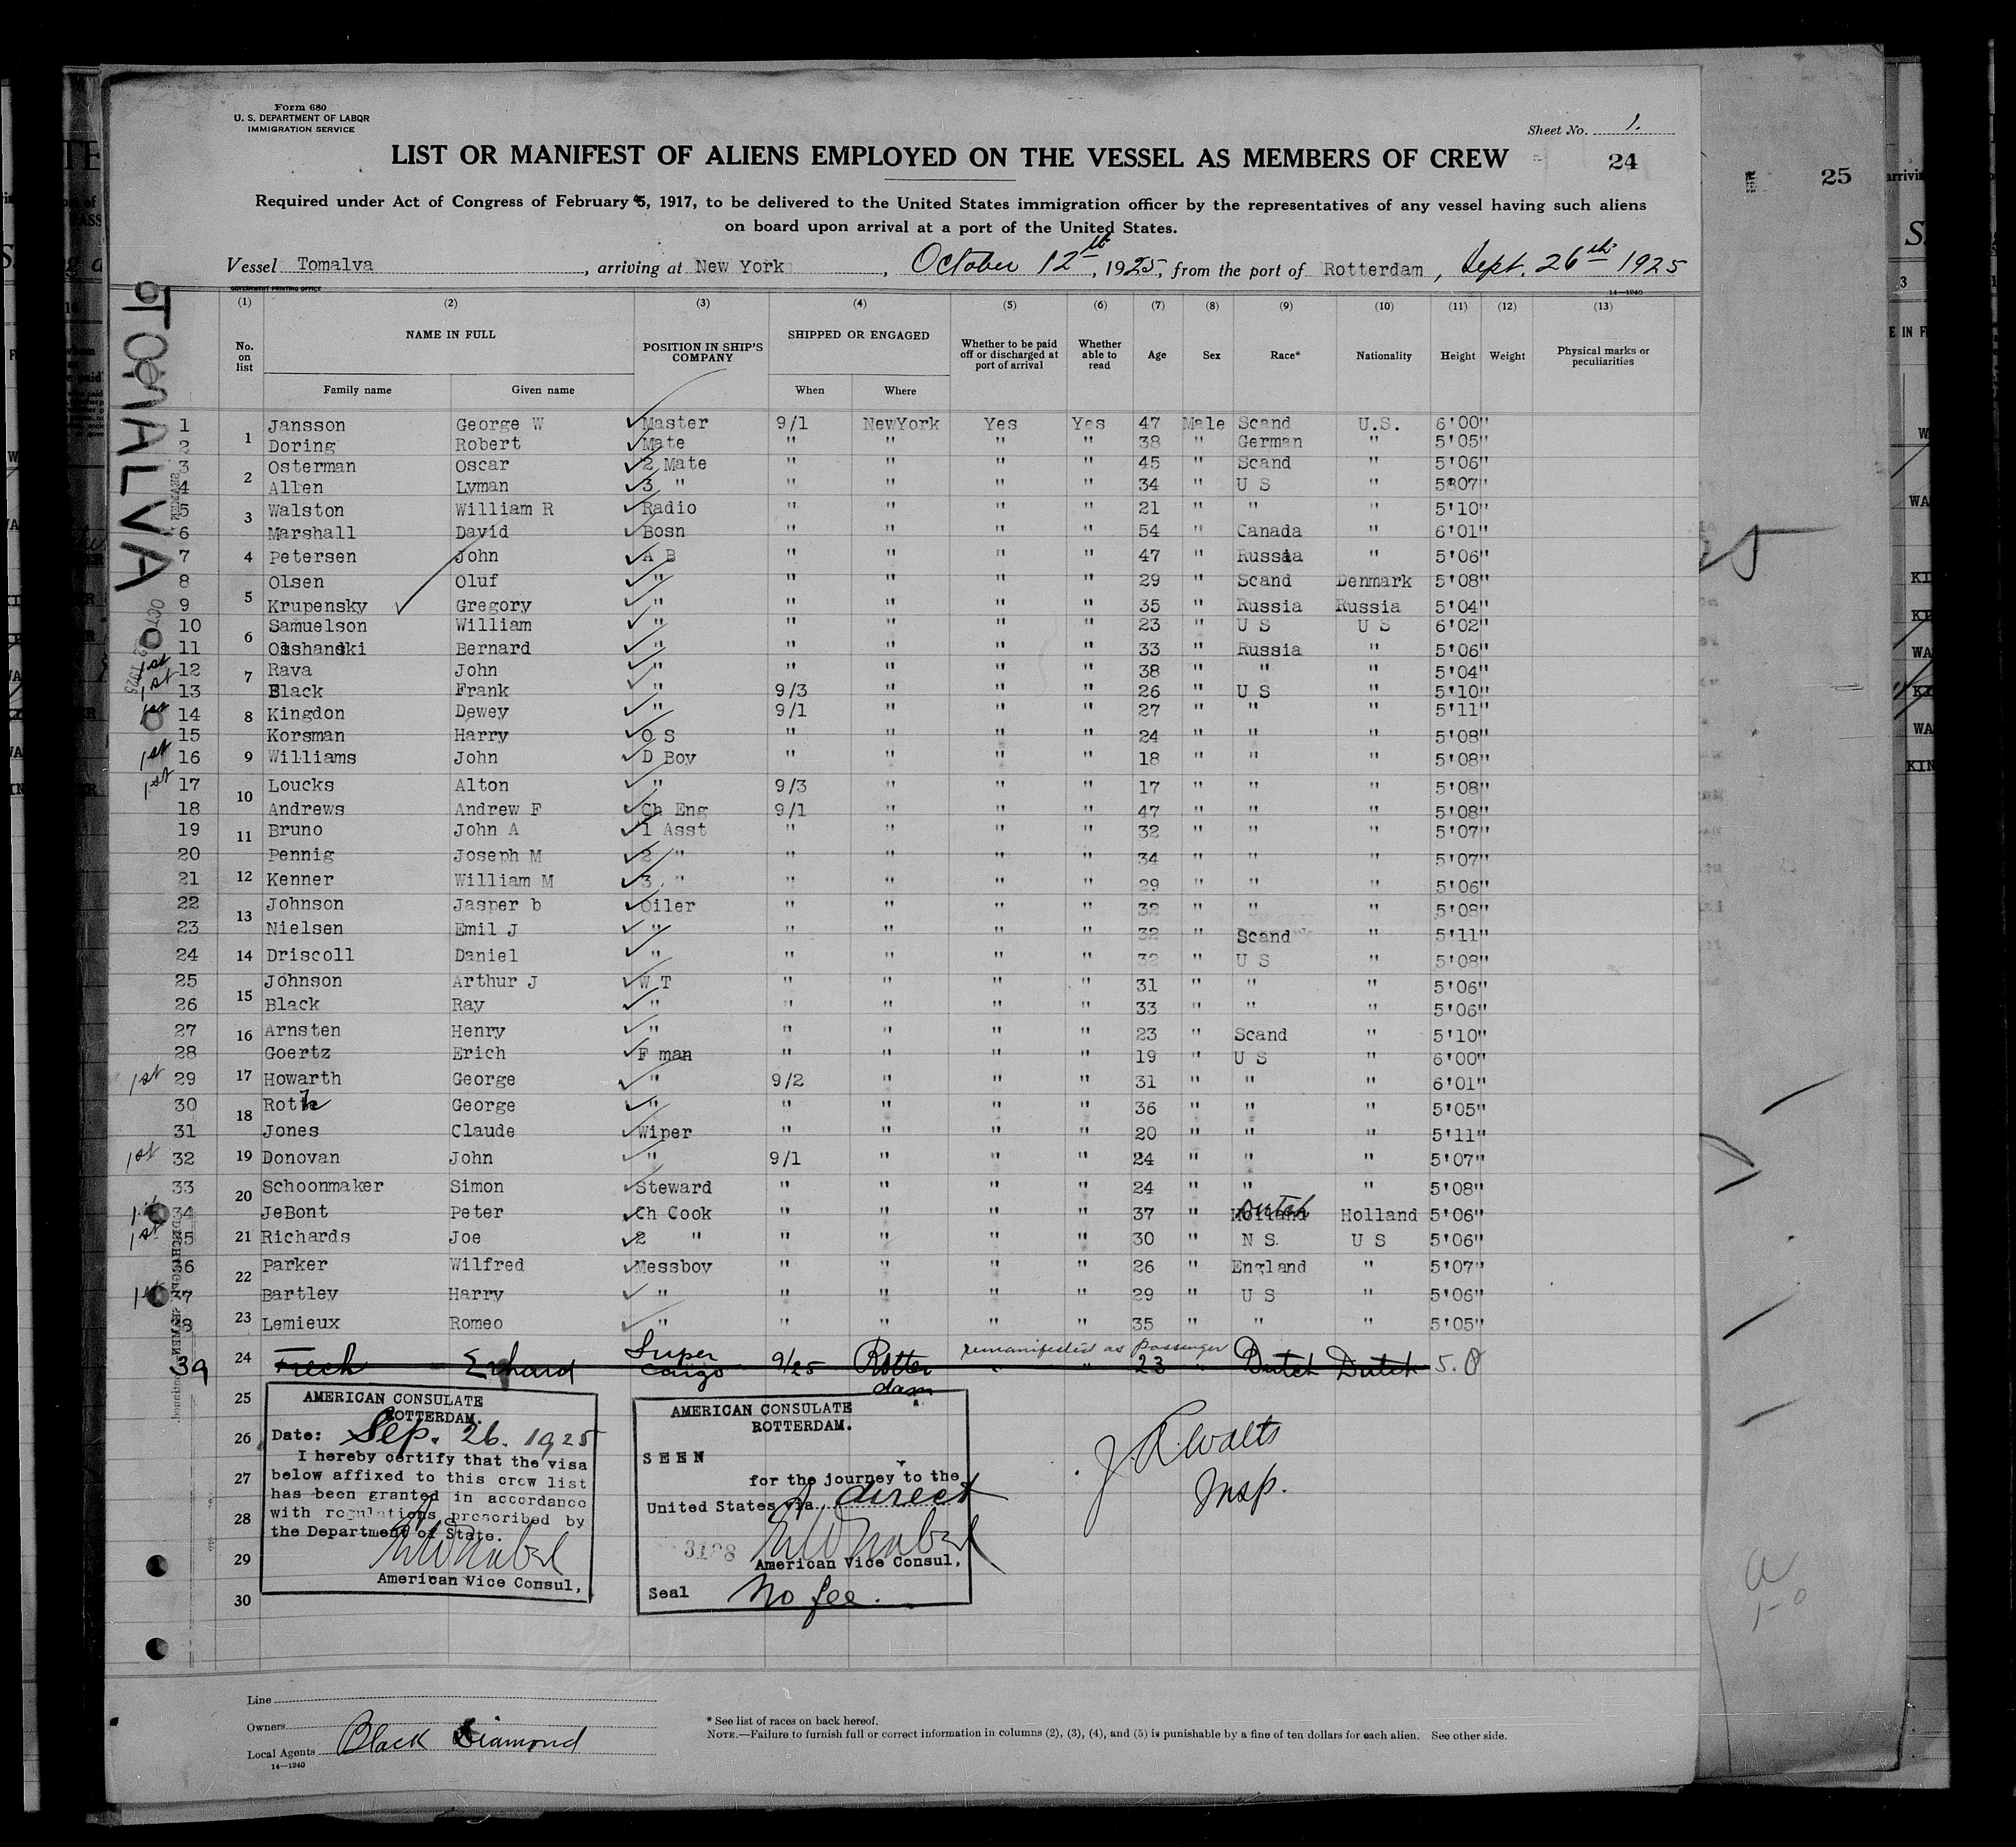 Form 680
U. S. DEPARTMENT OF LABOR
IMMIGRATION SERVICE
Sheet No. 1.
LIST OR MANIFEST OF ALIENS EMPLOYED ON THE VESSEL AS MEMBERS OF CREW
24
25
Required under Act of Congress of February 5, 1917, to be delivered to the United States immigration officer by the representatives of any vessel having such aliens
on board upon arrival at a port of the United States.
Vessel Tomalva, arriving at New York, October 12th, 1925, from the port of Rotterdam, Sept. 26th 1925
GOVERNMENT PRINTING OFFICE
14—1240
TOMALVA
(1) (2) (3) (4) (5) (6) (7) (8) (9) (10) (11) (12) (13)
No. on list
NAME IN FULL
Family name Given name
POSITION IN SHIP'S COMPANY
SHIPPED OR ENGAGED
When Where
Whether to be paid off or discharged at port of arrival
Whether able to read
Age Sex Race* Nationality Height Weight
Physical marks or peculiarities
1 Jansson George W Master 9/1 NewYork Yes Yes 47 Male Scand U.S. 6'00"
2 Doring Robert Mate " " " " 38 " German " 5'05"
3 Osterman Oscar 2 Mate " " " " 45 " Scand " 5'06"
4 Allen Lyman 3 " " " " " 34 " U S " 5'07"
5 Walston William R Radio " " " " 21 " " " 5'10"
6 Marshall David Bosn " " " " 54 " Canada " 6'01"
7 Petersen John A B " " " " 47 " Russia " 5'06"
8 Olsen Oluf " " " " " 29 " Scand Denmark 5'08"
9 Krupensky Gregory " " " " " 35 " Russia Russia 5'04"
10 Samuelson William " " " " " 23 " U S U S 6'02"
11 Olshanski Bernard " " " " " 33 " Russia " 5'06"
1st 12 Rava John " " " " " 38 " " " 5'04"
1st 13 Black Frank " 9/3 " " " 26 " U S " 5'10"
1st 14 Kingdon Dewey " 9/1 " " " 27 " " " 5'11"
15 Korsman Harry O S " " " " 24 " " " 5'08"
1st 16 Williams John D Boy " " " " 18 " " " 5'08"
1st 17 Loucks Alton " 9/3 " " " 17 " " " 5'08"
18 Andrews Andrew F Ch Eng 9/1 " " " 47 " " " 5'08"
19 Bruno John A 1 Asst " " " " 32 " " " 5'07"
20 Pennig Joseph M 2 " " " " " 34 " " " 5'07"
21 Kenner William M 3 " " " " " 29 " " " 5'06"
22 Johnson Jasper b Oiler " " " " 32 " " " 5'08"
23 Nielsen Emil J " " " " " 32 " Scand " 5'11"
24 Driscoll Daniel " " " " " 32 " U S " 5'08"
25 Johnson Arthur J W T " " " " 31 " " " 5'06"
26 Black Ray " " " " " 33 " " " 5'06"
27 Arnsten Henry " " " " " 23 " Scand " 5'10"
28 Goertz Erich F man " " " " 19 " U S " 6'00"
1st 29 Howarth George " 9/2 " " " 31 " " " 6'01"
30 Roth George " " " " " 36 " " " 5'05"
31 Jones Claude Wiper " " " " 20 " " " 5'11"
1st 32 Donovan John " 9/1 " " " 24 " " " 5'07"
33 Schoonmaker Simon Steward " " " " 24 " " " 5'08"
1st 34 JeBont Peter Ch Cook " " " " 37 " Holland Dutch Holland 5'06"
1st 35 Richards Joe 2 " " " " " 30 " N S. U S 5'06"
36 Parker Wilfred Messboy " " " " 26 " England " 5'07"
1st 37 Bartley Harry " " " " " 29 " U S " 5'06"
38 Lemieux Romeo " " " " " 35 " " " 5'05"
39 Frech Erhard Super cargo 9/25 Rotterdam remanifested as passenger 23 Dutch Dutch 5.
1 2 3 4 5 6 7 8 9 10 11 12 13 14 15 16 17 18 19 20 21 22 23 24 25 26 27 28 29 30
AMERICAN CONSULATE
ROTTERDAM.
Date: Sep. 26. 1925
I hereby certify that the visa
below affixed to this crew list
has been granted in accordance
with regulations prescribed by
the Department of State.
American Vice Consul,
AMERICAN CONSULATE
ROTTERDAM.
SEEN
for the journey to the
United States via direct
American Vice Consul,
Seal No fee.
Insp.
Line
Owners
Local Agents Black Diamond
14—1240
* See list of races on back hereof.
NOTE.—Failure to furnish full or correct information in columns (2), (3), (4), and (5) is punishable by a fine of ten dollars for each alien. See other side.